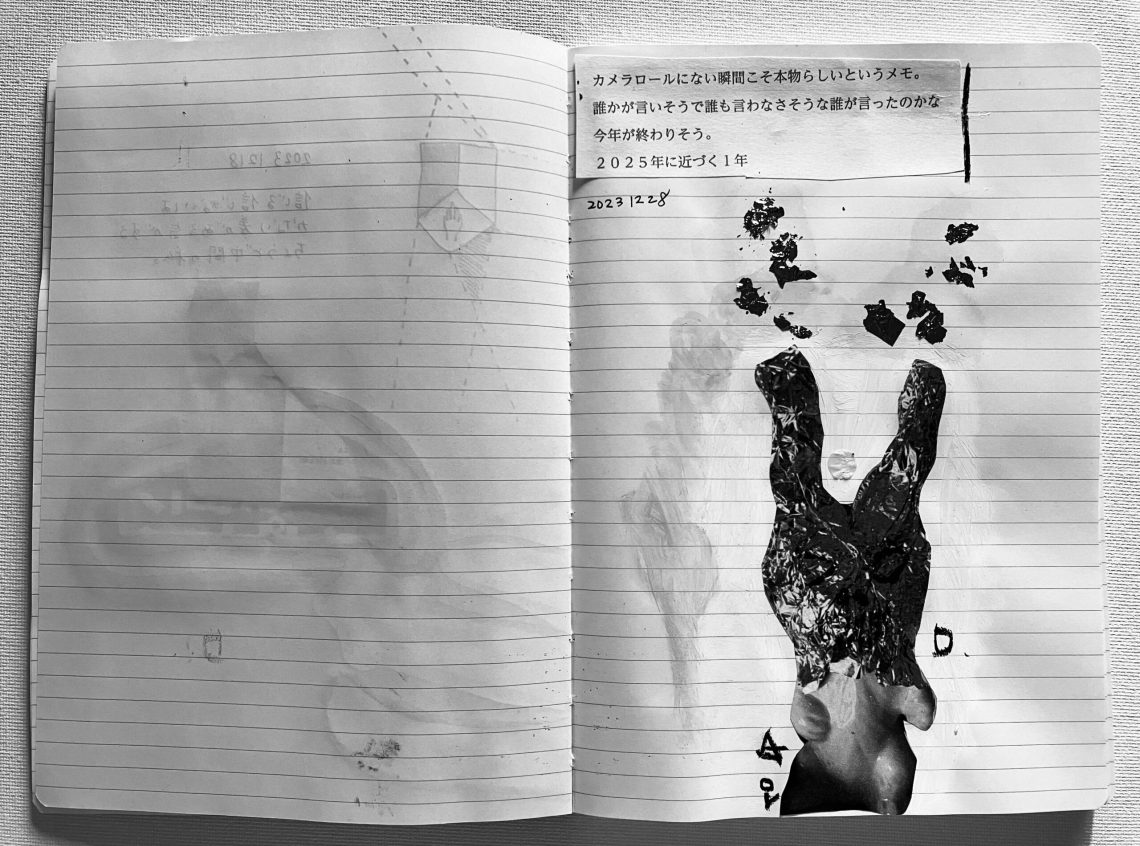 カメラロールにない瞬間こそ本物らしいというメモ。
誰かが言いそうで誰も言わなさそうな誰が言ったのかな
今年が終わりそう。
２０２５年に近づく１年
2023 12 28
2023 12 18
D.
A